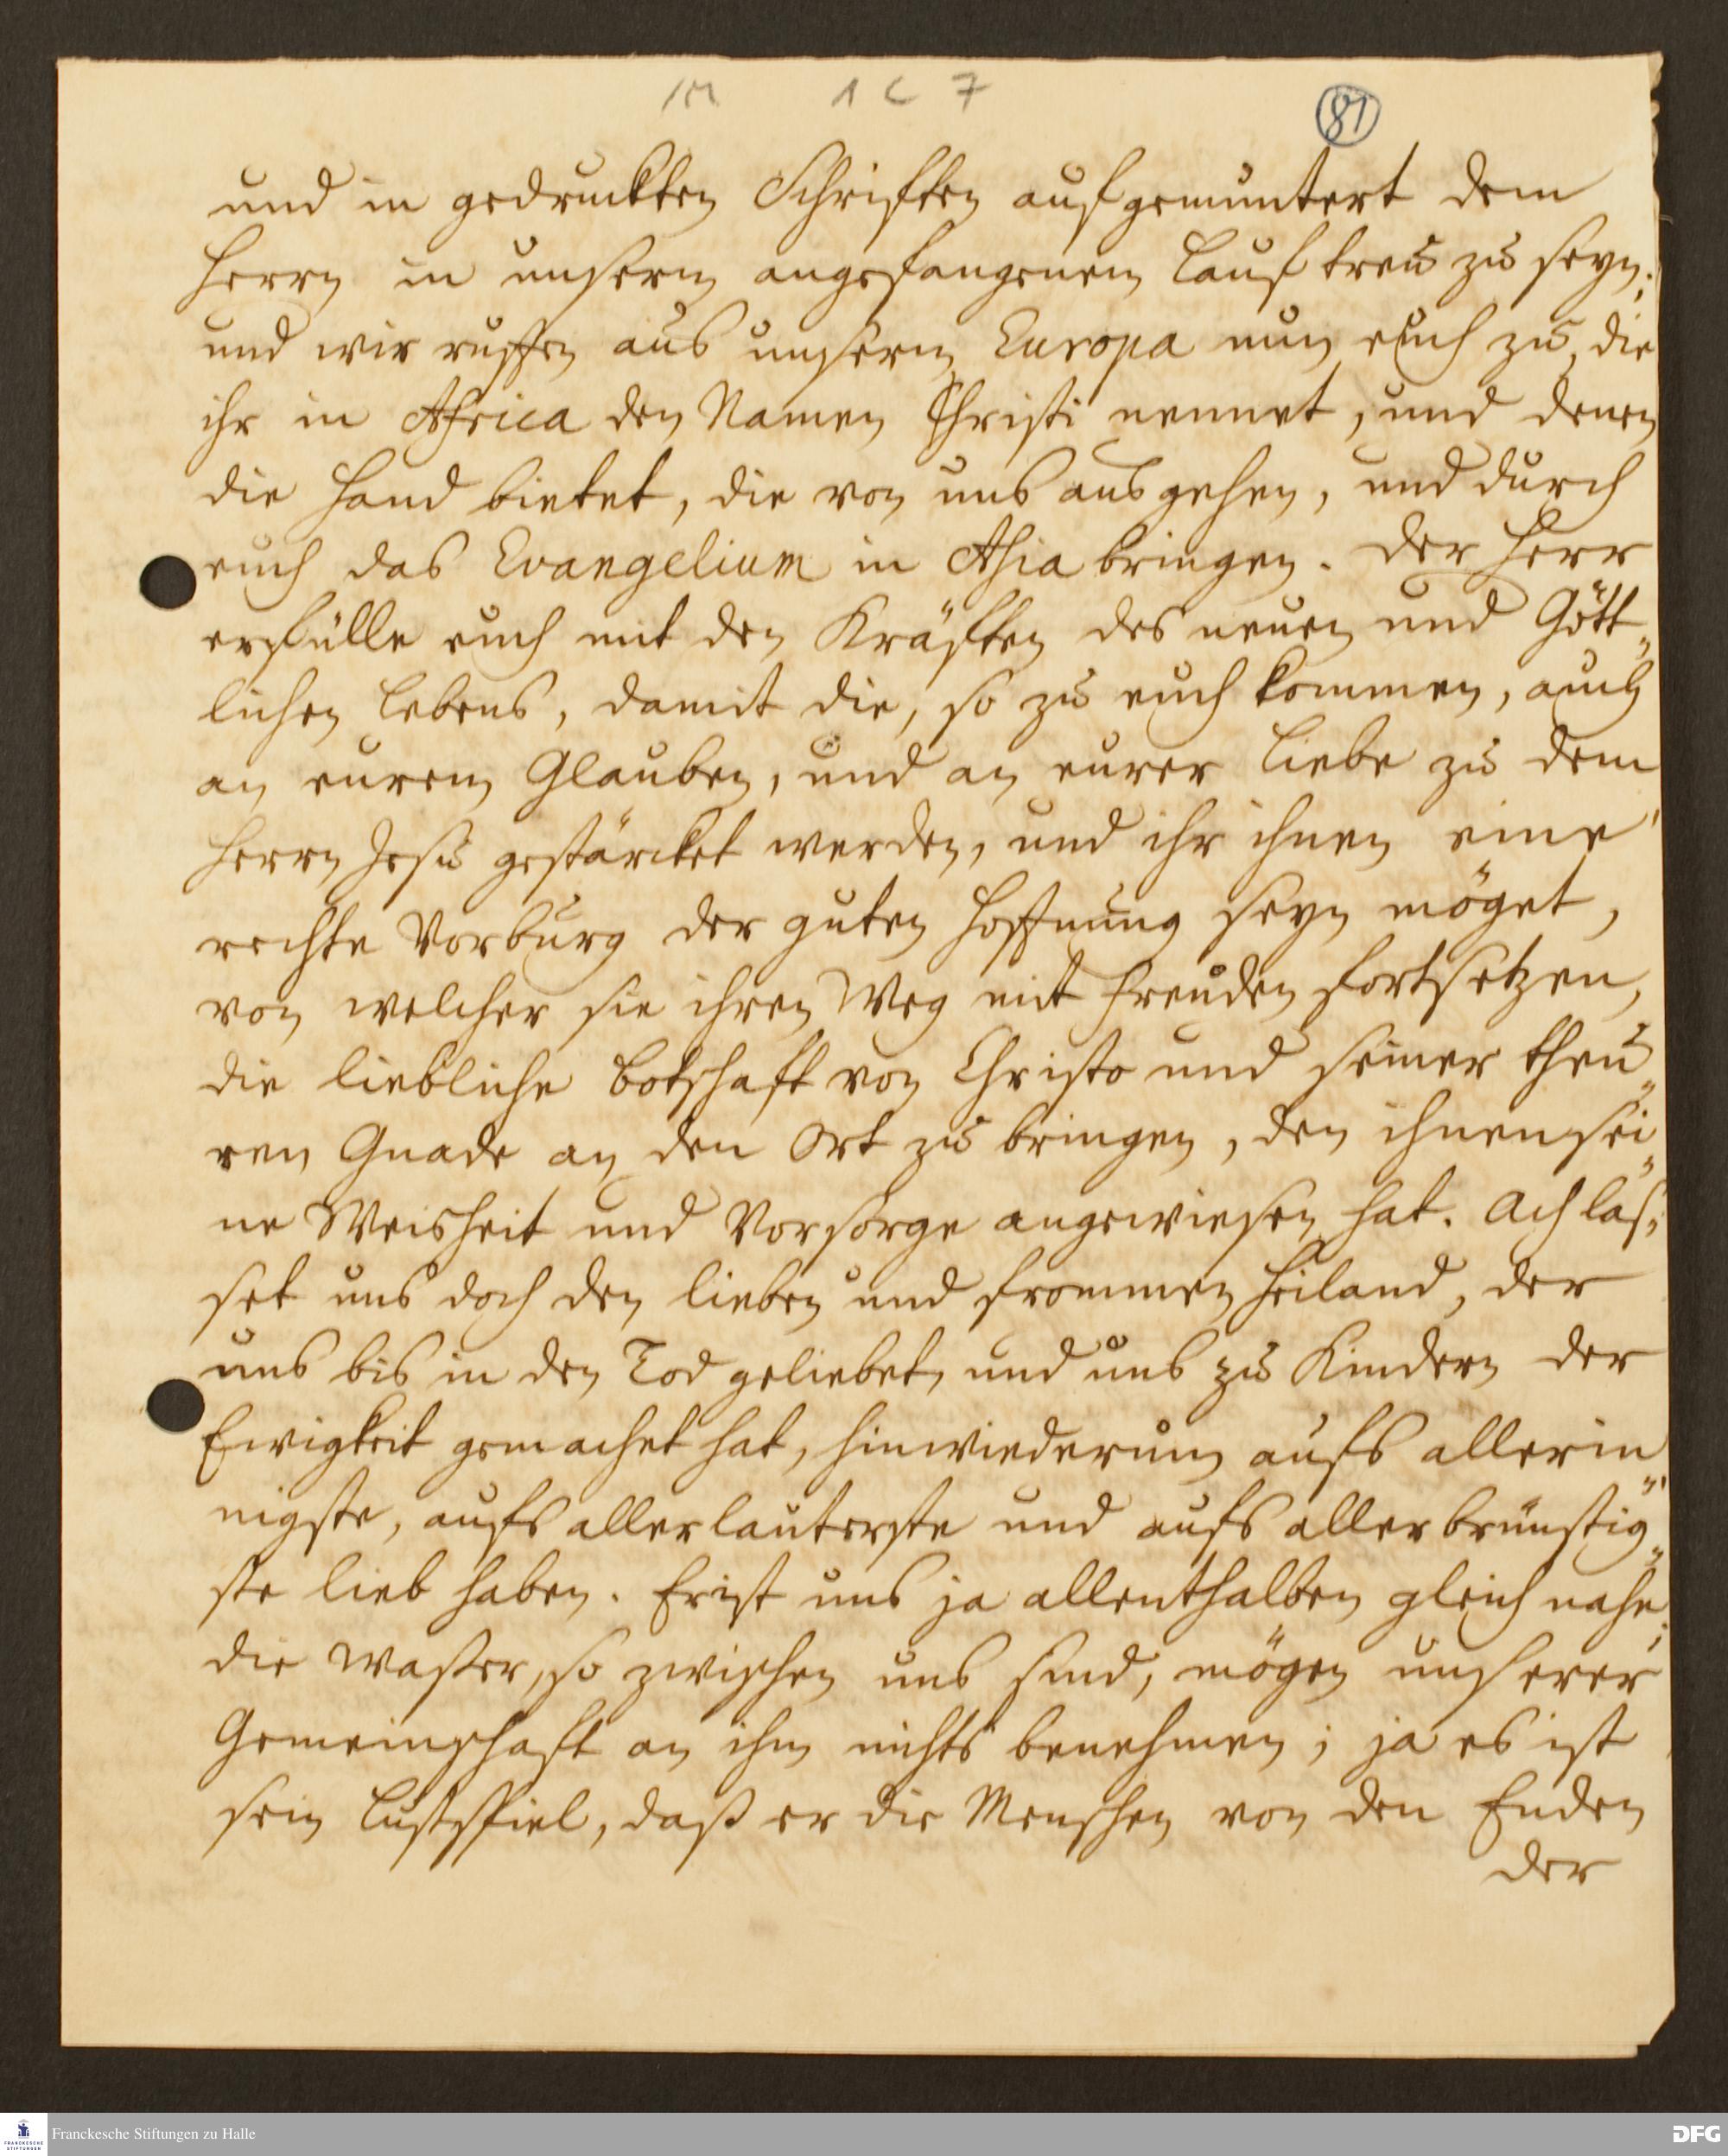 1M 1 C 7
81
und in gedruckten Schrifften aufgemuntert dem
Herrn in unserm angefangenen Lauf treu zu seyn;
und wir ruffen aus unserm Europa nun euch zu, die
ihr in Africa den Namen Christi nennet, und denen
die Hand bietet, die von uns ausgehen, und durch
euch das Evangelium in Asia bringen. Der Herr
erfülle euch mit den Kräfften des neuen und Gött„
lichen Lebens, damit die, so zu euch kommen, auch
an eurem Glauben, und an eurer Liebe zu dem
Herrn Jesu gestärcket werden, und ihr ihnen eine
rechte Vorburg der guten Hoffnung seyn möget,
von welcher sie ihren Weg mit Freuden fortsetzen,
die liebliche Botschafft von Christo und seiner theu„
ren Gnade an den Ort zu bringen, den ihnen sei„
ne Weisheit und Vorsorge angewiesen hat. Ach las„
set uns doch den lieben und frommen Heiland, der
uns bis in den Tod geliebet, und uns zu Kindern der
Ewigkeit gemachet hat, hinwiederum aufs allerin„
nigste, aufs allerlauterste und aufs allerbrünstig„
ste lieb haben. Er ist uns ja allenthalben gleich nahe;
die Waßer, so zwischen uns sind, mögen unserer
Gemeinschafft an ihm nichts benehmen; ja es ist
sein Lustspiel, daß er die Menschen von den Enden
der
Franckesche Stiftungen zu Halle
FRANCKESCHE
STIFTUNGEN
DFG